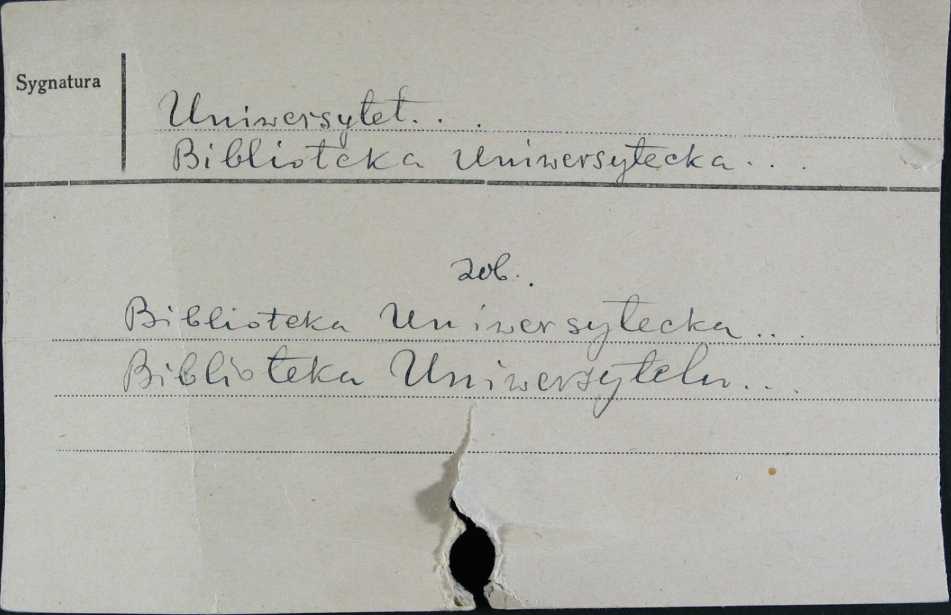 Sygnatura
Uniwersytet. . .
Biblioteka Uniwersytecka . . .
zob.
Biblioteka Uniwersytecka . . .
Biblioteka Uniwersytetu . . .